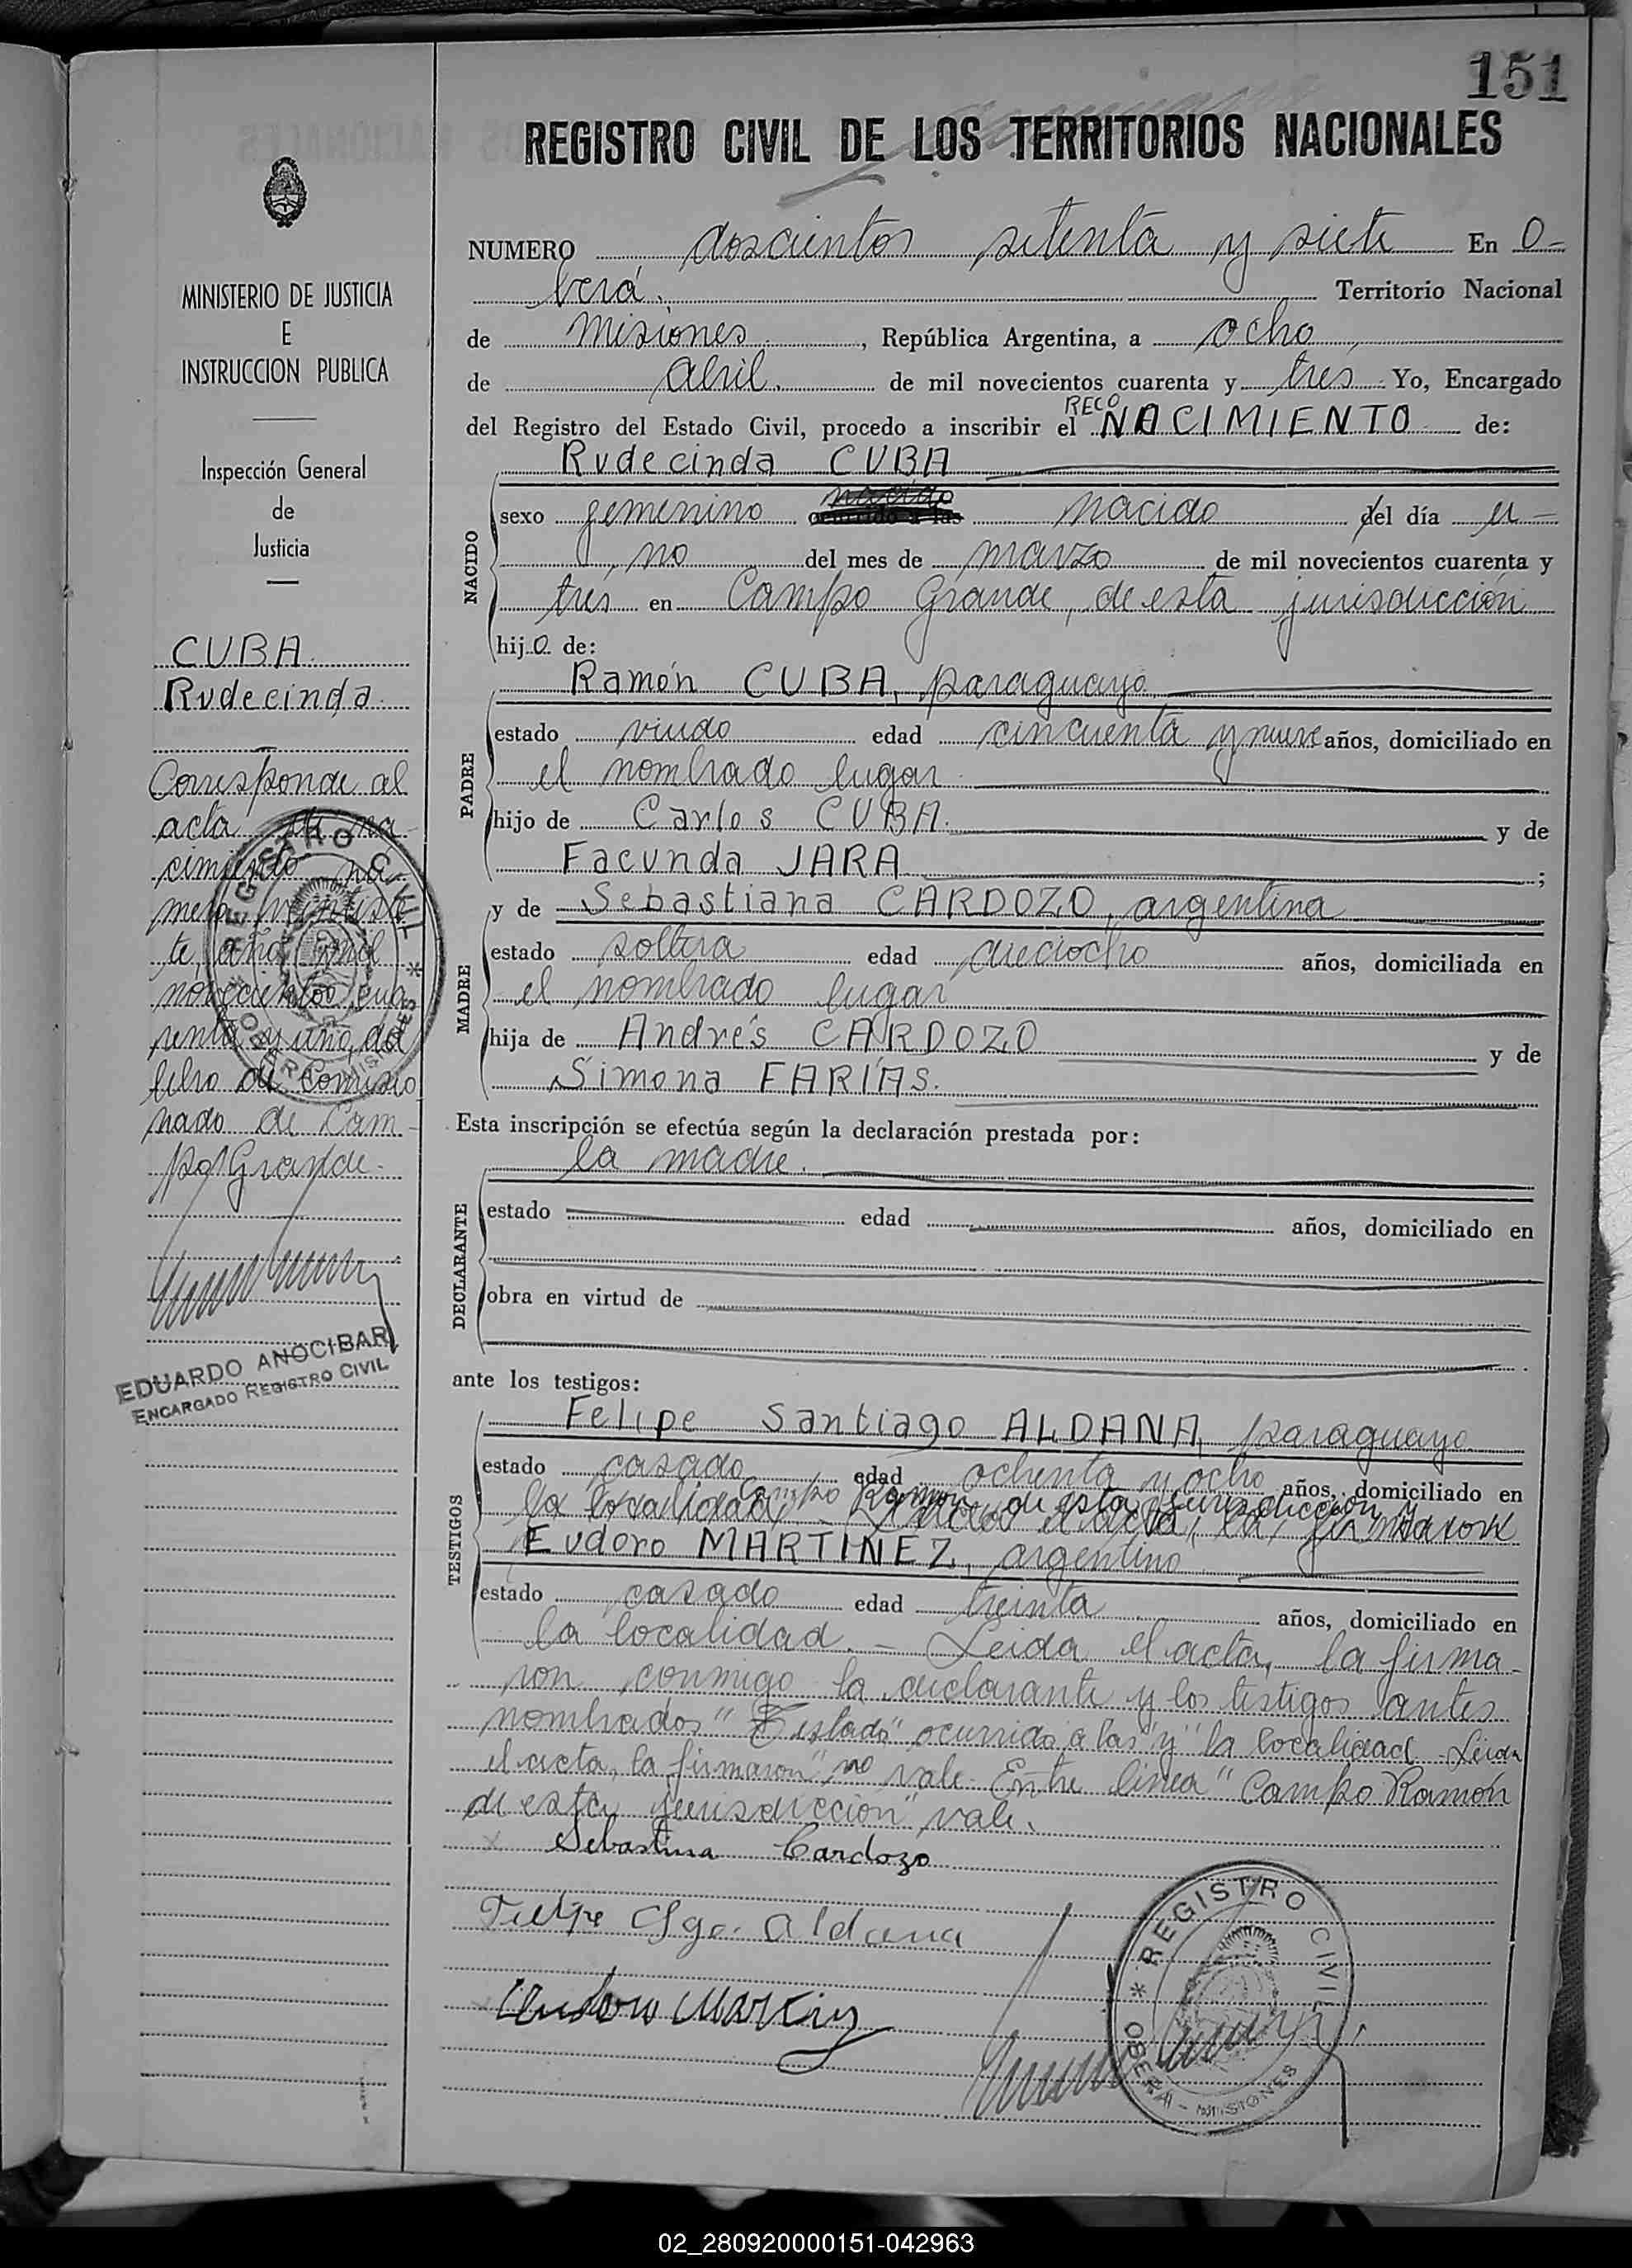 151
REGISTRO CIVIL DE LOS TERRITORIOS NACIONALES
MINISTERIO DE JUSTICIA
E
INSTRUCCION PUBLICA
Inspección General
de
Justicia
CUBA
Rudecinda
Corresponde al
acta de na-
cimiento nú
mero veintisie
te, año mil
novecientos cua
renta y uno, del
libro de Comisio
nado de Cam-
po Grande.
EDUARDO ANOCIBAR
ENCARGADO REGISTRO CIVIL
REGISTRO CIVIL
OBERA - MISIONES
NUMERO doscientos setenta y siete En O-
berá. Territorio Nacional
de Misiones, República Argentina, a ocho
de abril. de mil novecientos cuarenta y tres. Yo, Encargado
del Registro del Estado Civil, procedo a inscribir el RECONOCIMIENTO de:
Rudecinda CUBA
NACIDO
sexo femenino nacido del día u-
no del mes de marzo de mil novecientos cuarenta y
trés en Campo Grande, de esta jurisdicción
hijo de:
Ramón CUBA, paraguayo
PADRE
estado viudo edad cincuenta y nueve años, domiciliado en
el nombrado lugar
hijo de Carlos CUBA. y de
Facunda JARA ;
y de Sebastiana CARDOZO, argentina
MADRE
estado soltera edad dieciocho años, domiciliada en
el nombrado lugar
hija de Andrés CARDOZO y de
Simona FARÍAS.
Esta inscripción se efectúa según la declaración prestada por:
la madre.
DECLARANTE
estado edad años, domiciliado en
obra en virtud de
ante los testigos:
Felipe Santiago ALDANA, paraguayo
TESTIGOS
estado casado edad ochenta y ocho años, domiciliado en
Campo Ramón de esta jurisdicción y
la localidad. - Leida el acta, la firmaron
Eudoro MARTINEZ, argentino
estado casado edad treinta años, domiciliado en
la localidad. - Leida el acta, la firma-
ron conmigo la declarante y los testigos antes
nombrados" Testado" ocurrido a las" y" la localidad - Leida
el acta, la firmaron" no vale. Entre linea" Campo Ramón
de esta jurisdicción" vale.
Sebastina Cardozo
Felipe Sgo. Aldana
Eudoro Martinz
REGISTRO CIVIL
OBERA - MISIONES
02_280920000151-042963